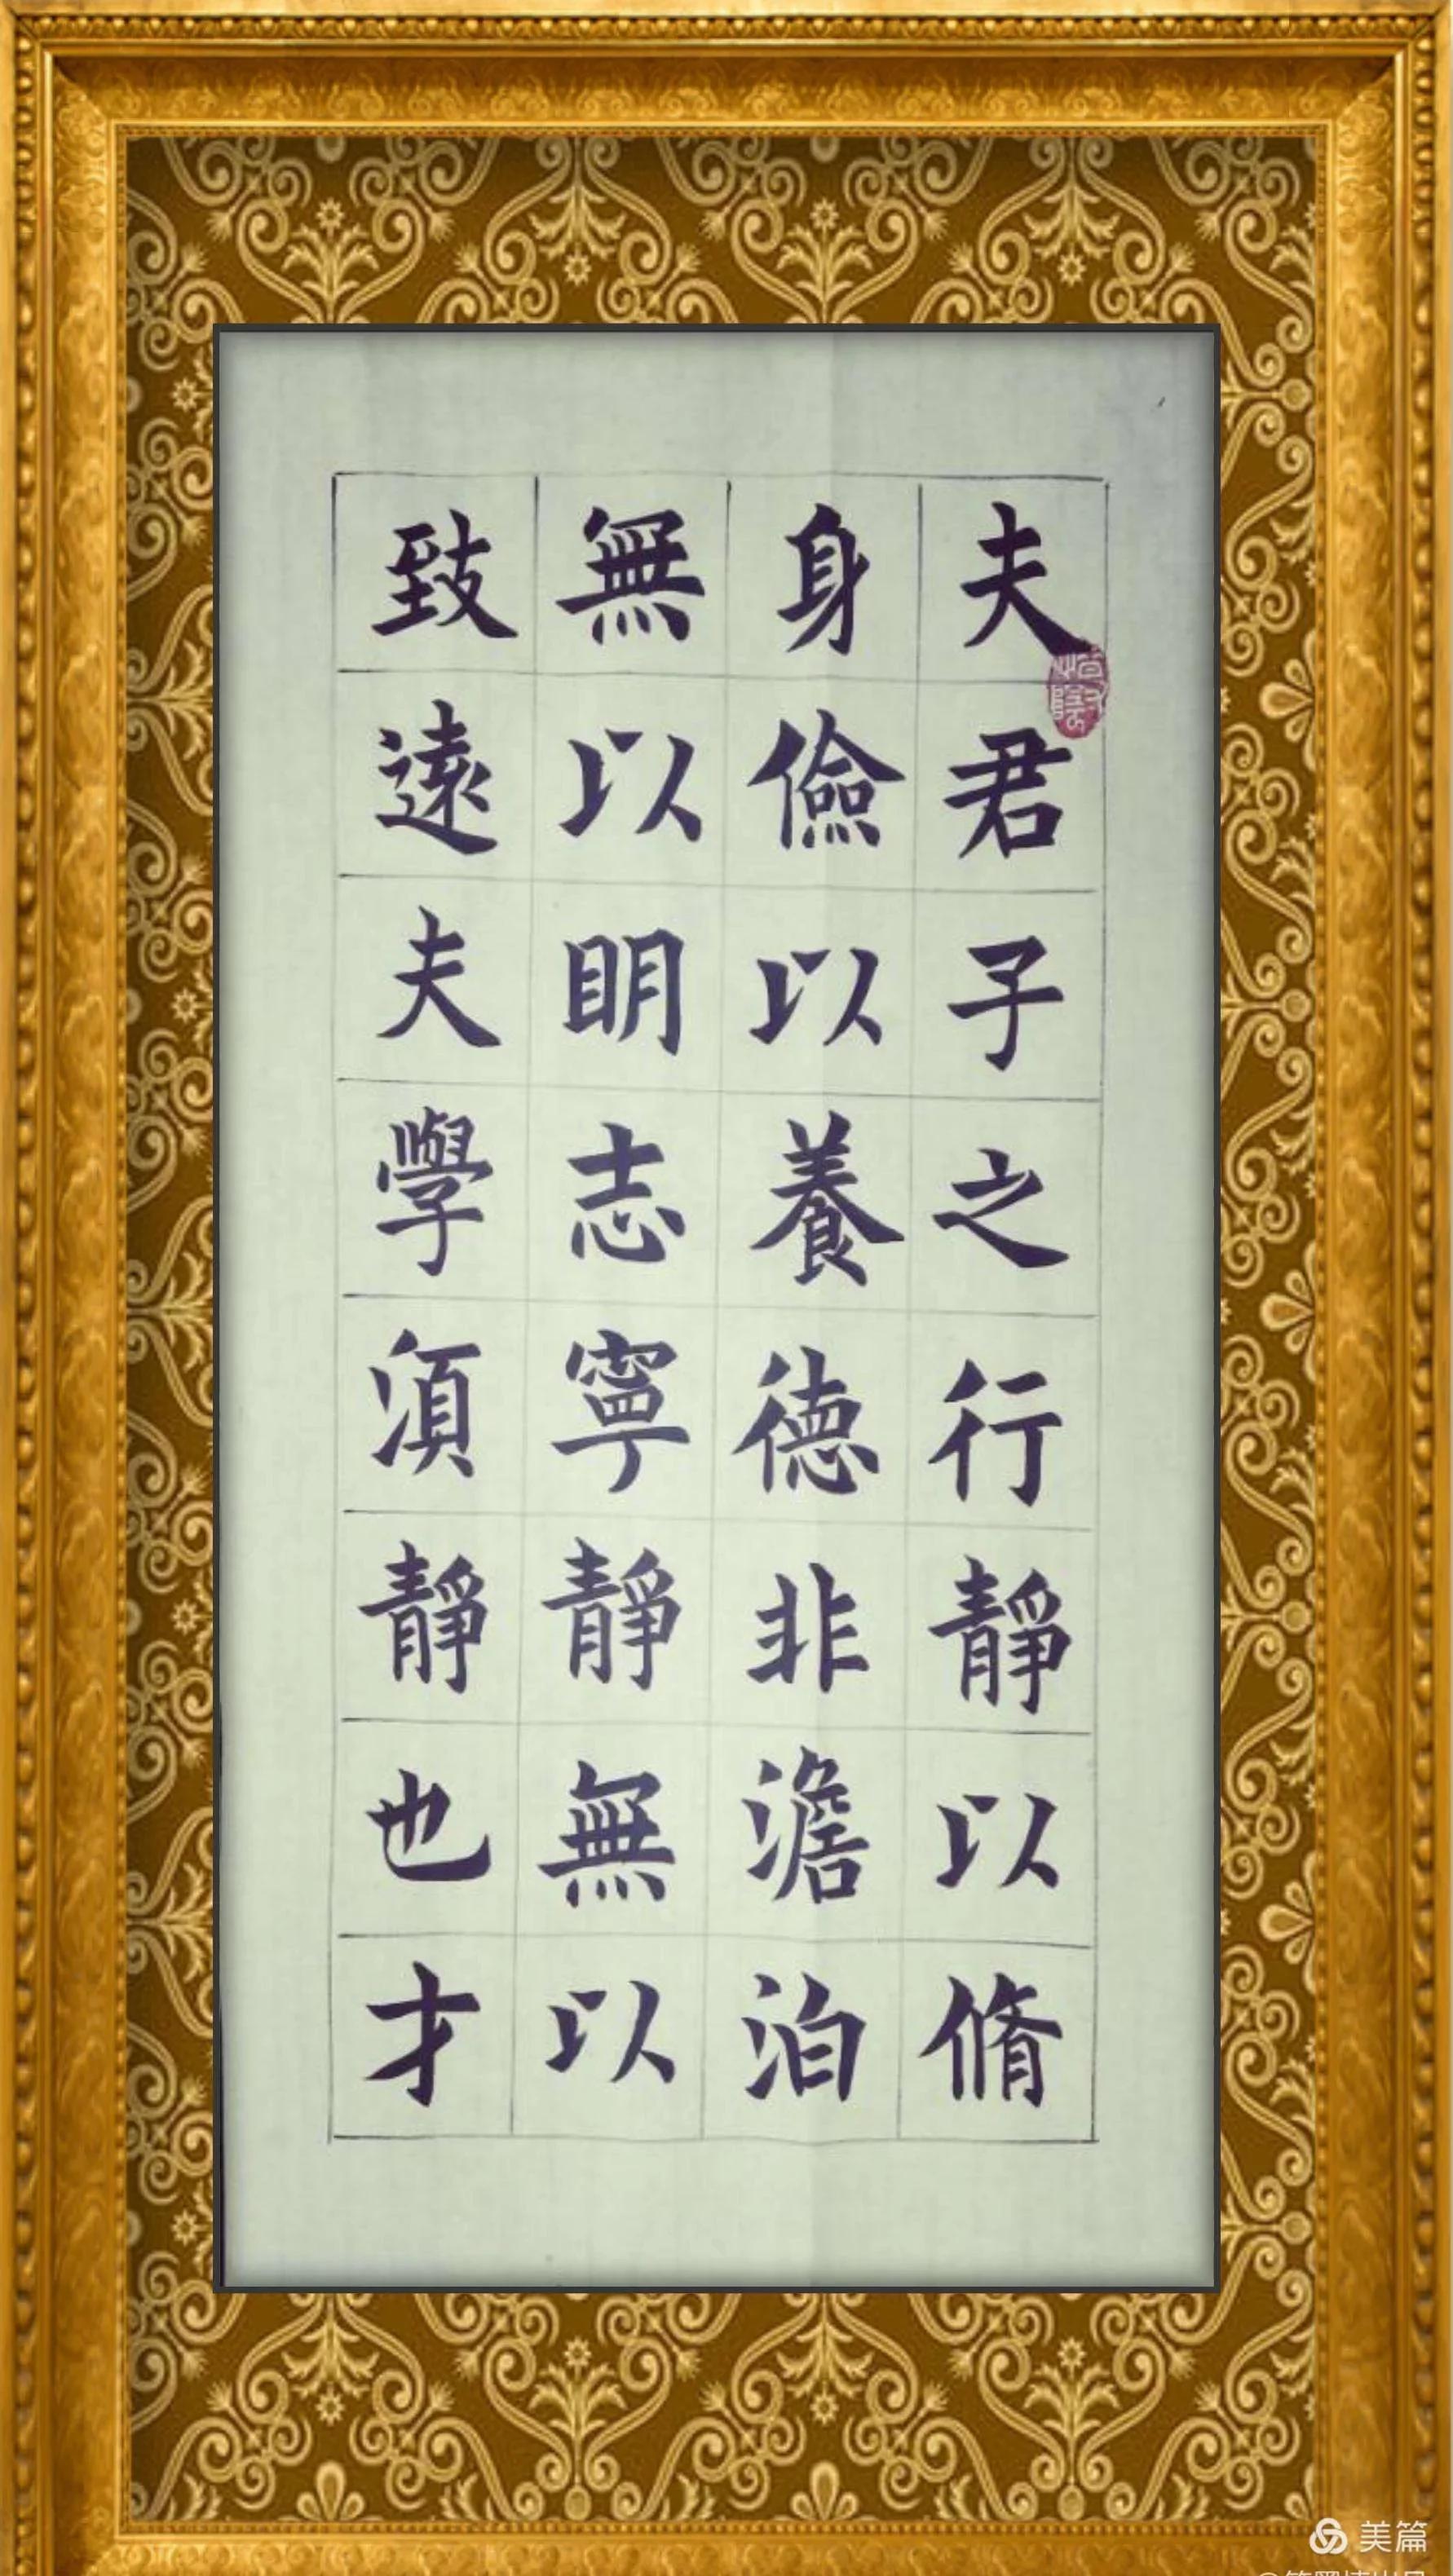 夫君子之行靜以脩
身儉以養德非澹泊
無以明志寧靜無以
致遠夫學須靜也才
美篇